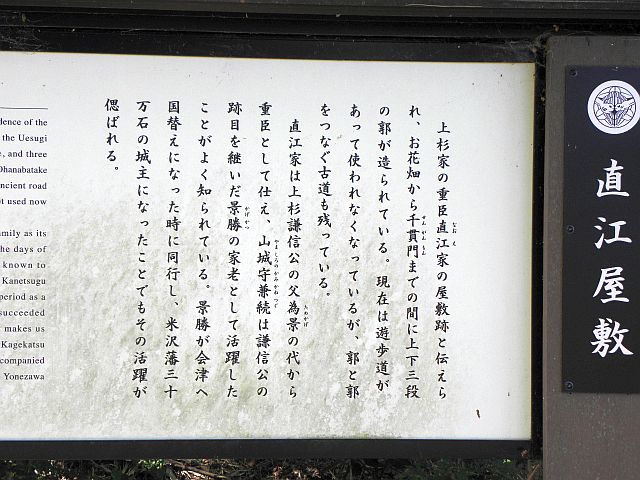 直江屋敷
上杉家の重臣直江家の屋敷跡と伝えら
れ、お花畑から千貫門までの間に上下三段
の郭が造られている。現在は遊歩道が
あって使われなくなっているが、郭と郭
をつなぐ古道も残っている。
直江家は上杉謙信公の父為景の代から
重臣として仕え、山城守兼続は謙信公の
跡目を継いだ景勝の家老として活躍した
ことがよく知られている。景勝が会津へ
国替えになった時に同行し、米沢藩三十
万石の城主になったことでもその活躍が
偲ばれる。
dence of the
the Uesugi
e, and three
Ohanabatake
ancient road
ot used now
amily as its
he days of
known to
Kanetsugu
period as a
succeeded
makes us
Kagekatsu
companied
Yonezawa